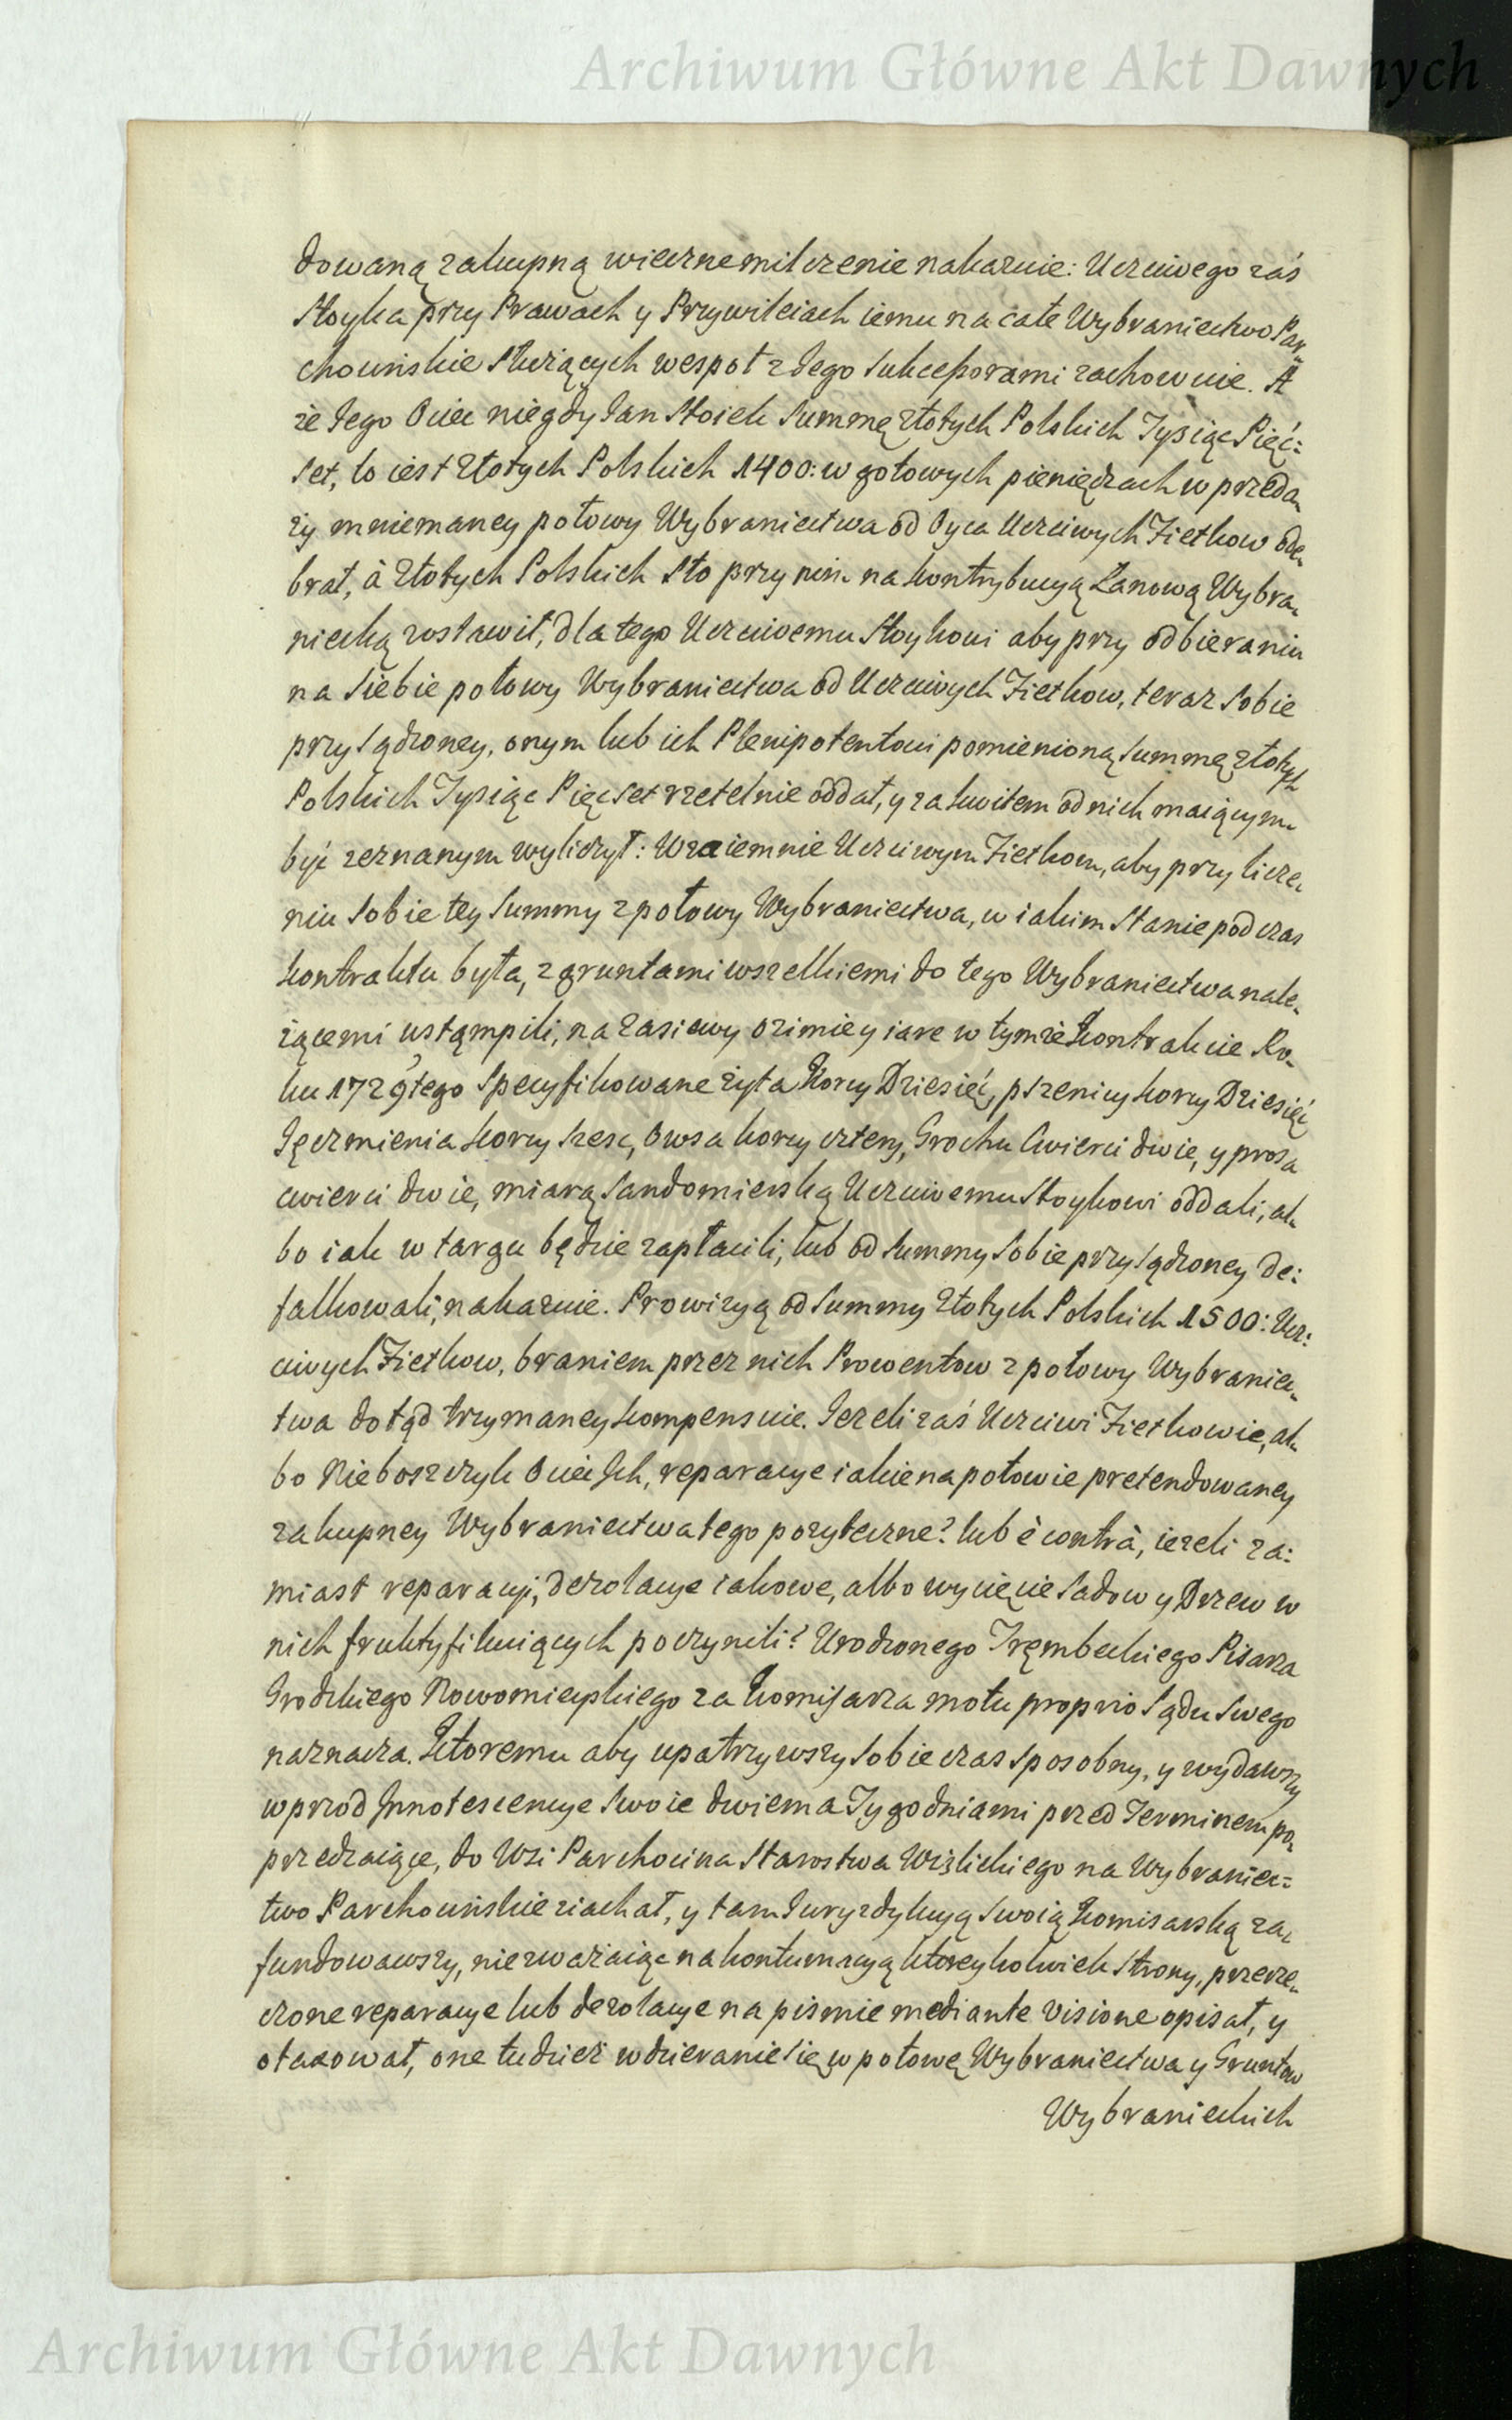 Archiwum Główne Akt Dawnych
dowaną zakupną wieczne milczenie nakazuie: Uczciwego zaś
Stoyka przy Prawach y Przywileiach iemu na całe Wybraniectwo Par-
chocińskie służących wespoł z Iego Sukcessorami zachowuie. A
że Iego Ociec niegdy Ian Stoiek Summę złotych Polskich Tysiąc Pięć:
set, to iest Złotych Polskich 1400: w gotowych pieniędzach w przeda-
ży mniemaney połowy Wybraniectwa od Oyca Uczciwych Ziętkow ode-
brał, à Złotych Polskich Sto przy nim na kontrybucyą Łanową Wybra-
niecką zostawił, dla tego Uczciwemu Stoykowi aby przy odbieraniu
na siebie połowy Wybraniectwa od Uczciwych Ziętkow, teraz sobie
przysądzoney, onym lub ich Plenipotentowi pomienioną summę złotych
Polskich Tysiąc Pięcset rzetelnie oddał, y za kwitem od nich maiącym
być zeznanym wyliczył: Wzaiemnie Uczciwym Ziętkom, aby przy licze-
niu sobie tey Summy z połowy Wybraniectwa, w iakim stanie podczas
kontraktu była, z gruntami wszelkiemi do tego Wybraniectwa nale-
żącemi ustąmpili, na zasiewy ozimie y iare w tymże kontrakcie Ro-
ku 1729tego specyfikowane żyta korcy Dziesięć, pszenicy korcy Dziesięć
Ięczmienia korcy szesc, Owsa korcy cztery, Grochu Cwierci dwie, y prosa
cwierci dwie, miarą Sandomierską Uczciwemu Stoykowi oddali, al-
bo iak w targu będzie zapłacili, lub od summy sobie przysądzoney de:
falkowali, nakazuie. Prowizyą od Summy Złotych Polskich 1500: Ucz:
ciwych Ziętkow, braniem przez nich Prowentow z połowy Wybraniec-
twa dotąd trzymaney kompensuie. Ieżeli zaś Uczciwi Ziętkowie, al-
bo Nieboszczyk Ociec Ich, reparacye iakie na połowie pretendowaney
zakupney Wybraniectwa tego pożyteczne? lub è contrà, ieżeli za:
miast reparacyi, dezolacye iakowe, albo wycięcie Sadow y Drzew w
nich fruktyfikuiących poczynili? Urodzonego Trębeckiego Pisarza
Grodzkiego Nowomieyskiego za Kommisarza motu proprio Sądu Swego
naznacza. Ktoremu aby upatrzywszy sobie czas sposobny, y wydawszy
wprzod Innotescencye Swoie dwiema Tygodniami przed Terminem po-
przedzaiące, do Wsi Parchocina Starostwa Wiślickiego na Wybraniec=
two Parchocińskie ziachał, y tam Iuryzdykcyą swoią Komisarską za-
fundowawszy, niezważaiąc na kontumacyą ktoreykolwiek strony, przerze-
czone reparacye lub dezolacye na piśmie mediante visione opisał, y
otaxował, one tudzież wdzieranie się w połowę Wybraniectwa y Gruntow
Wybranieckich
Archiwum Główne Akt Dawnych